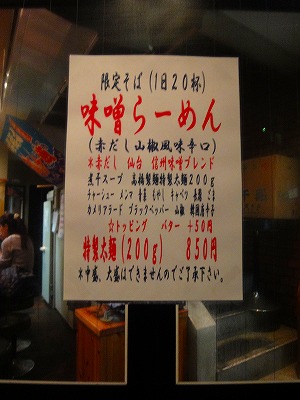 限定そば(1日20杯)
味噌らーめん
(赤だし山椒風味辛口)
*赤だし 仙台 信州味噌ブレンド
煮干スープ 高橋製麺特製太麺200g
チャーシュー メンマ 青菜 もやし キャベツ 玉葱 ごま
カメリアラード ブラックペッパー 山椒 韓国唐辛子
☆トッピング バター +50円
特製太麺(200g) 850円
*中盛、大盛はできませんのでご了承下さい。